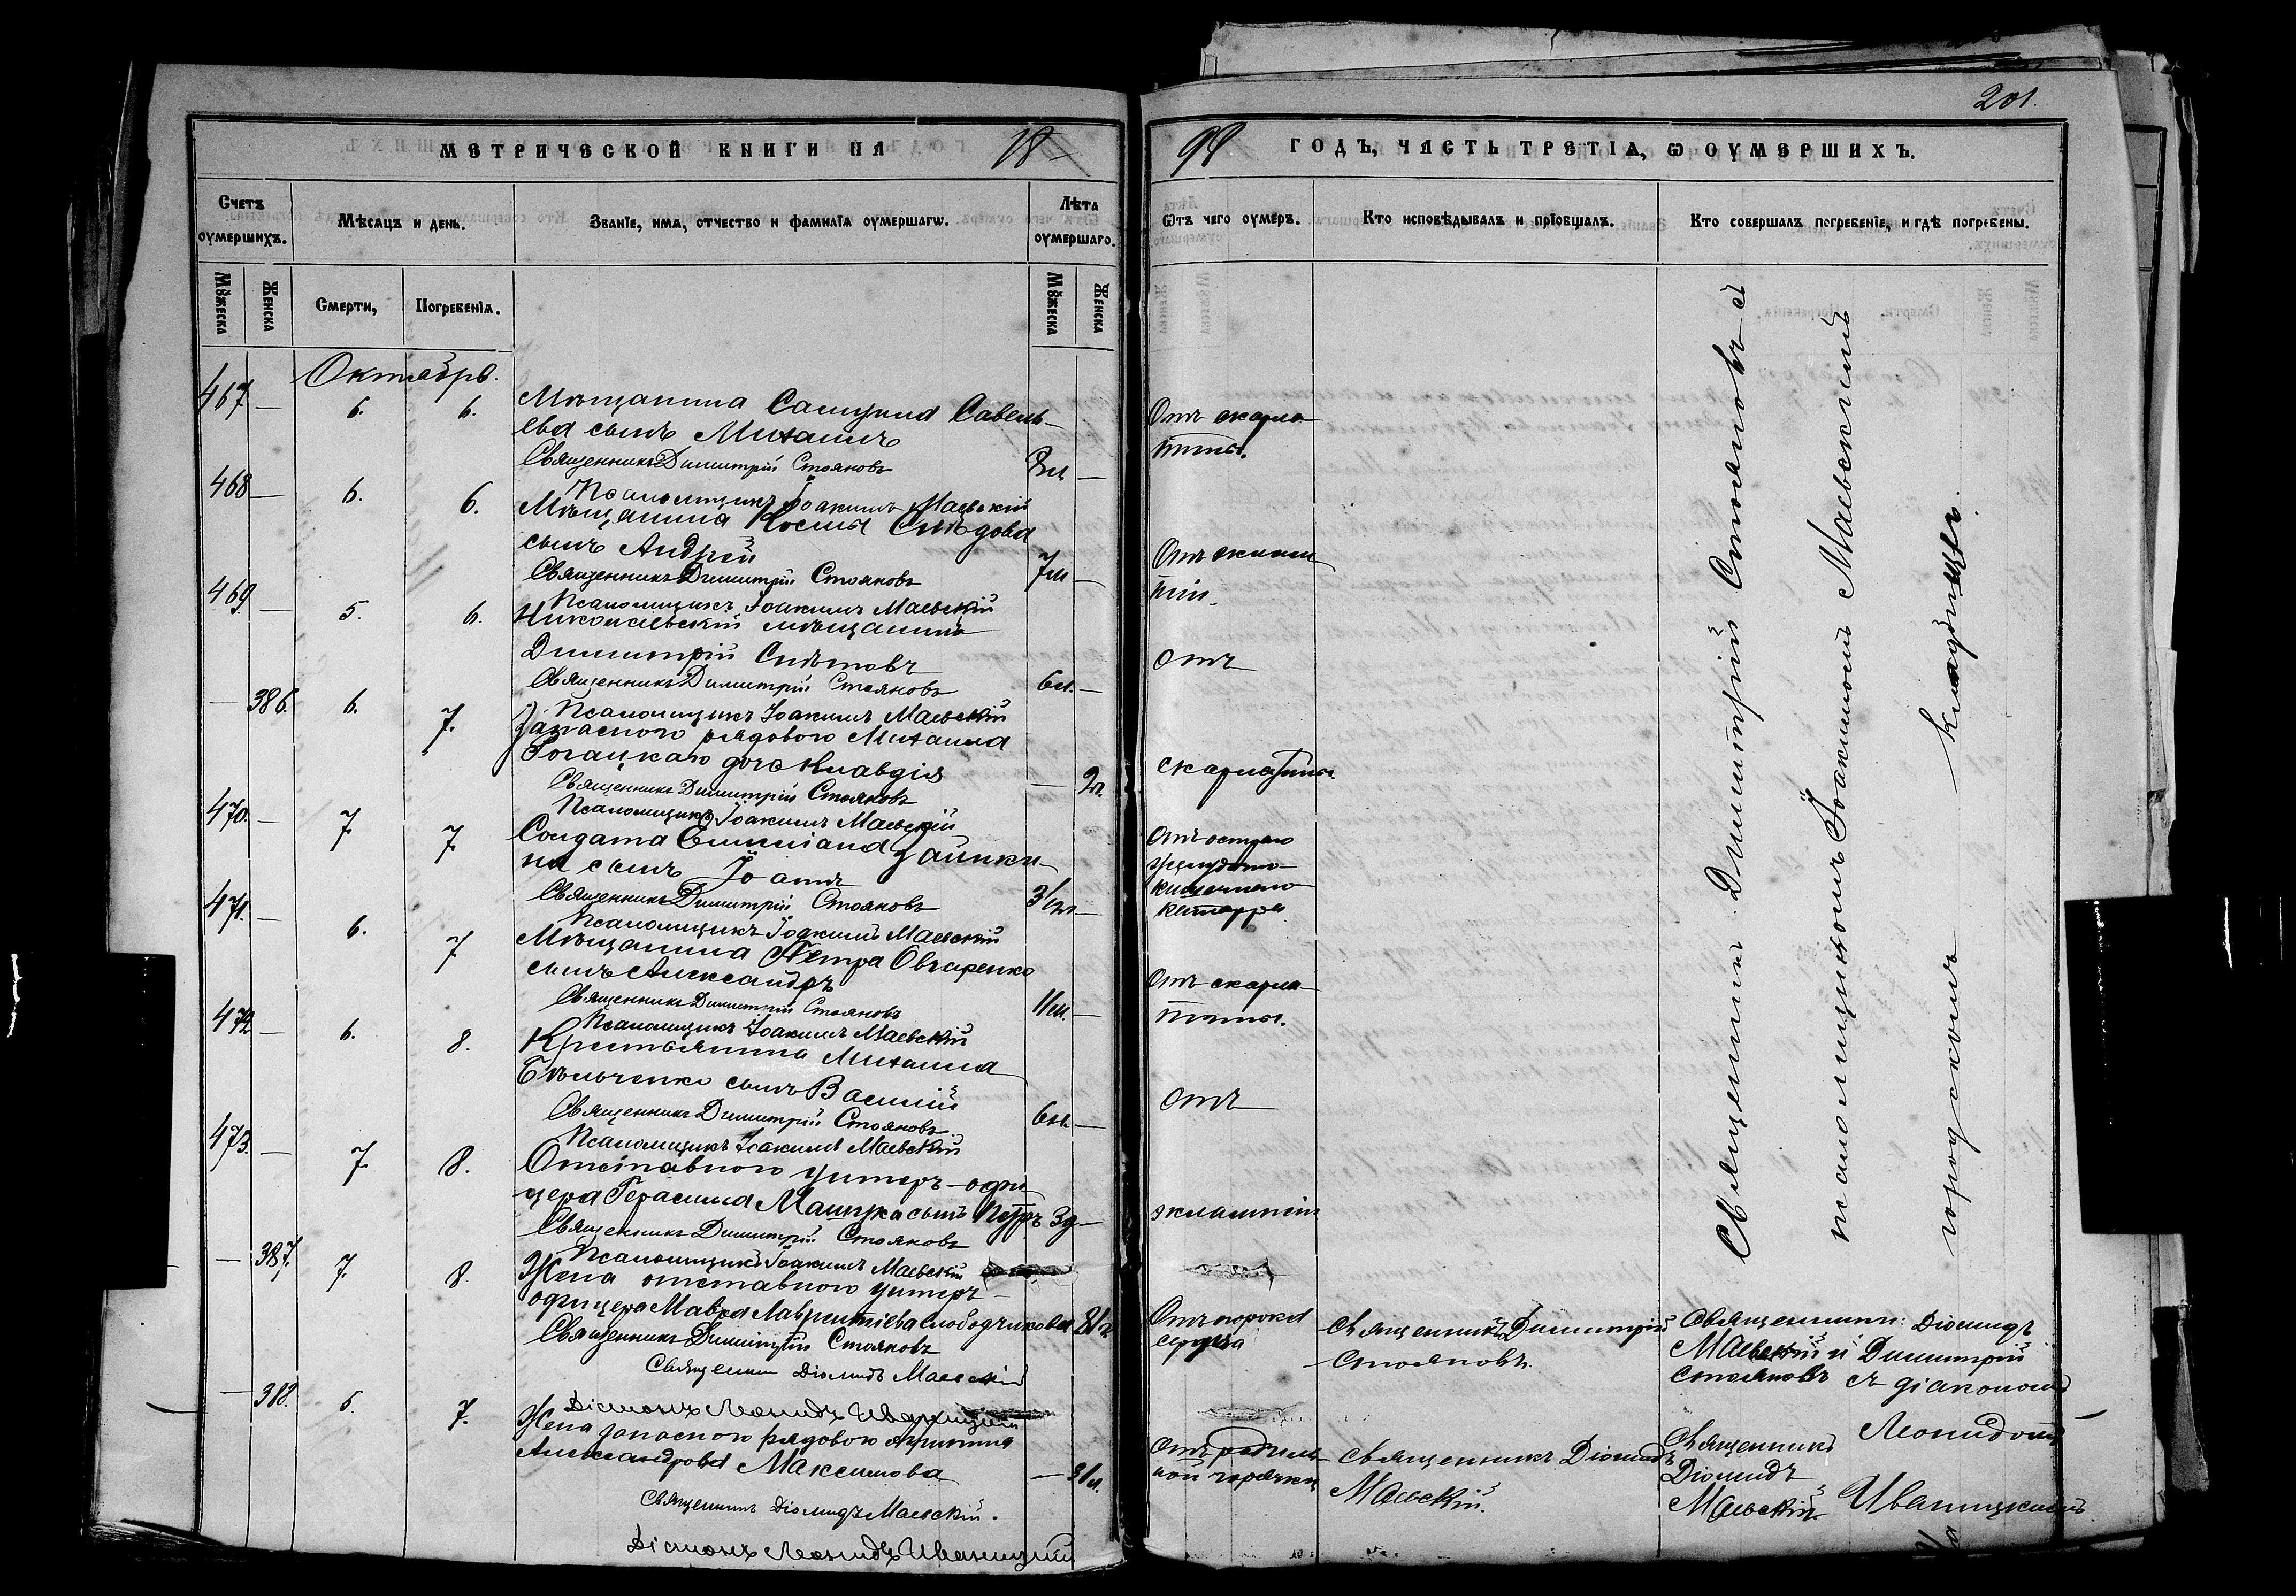 201.
МЕТРИЧЕСКОЙ КНИГИ НА 18
98 ГОДЪ, ЧАСТЬ ТРЕТІѦ, Ѡ ОУМЕРШИХЪ.
Счетъ оумершихъ.
Мѣсяцъ и день.
Званіе, имѧ, отчество и фамиліѧ оумершагѡ.
Лѣта оумершаго.
Ѿтъ чего оумеръ.
Кто исповѣдывалъ и пріобщалъ.
Кто совершалъ погребеніе, и гдѣ погребены.
Мꙋжеска
Женска
Смерти,
Погребеніѧ.
Мꙋжеска
Женска
Октябрь.
467. — 6. 6. Мѣщанина Савель-
ева сынъ Михаилъ
Отъ скарла-
тины.
Священникъ Димитрій Стояновъ
Псаломщикъ Іоакимъ Маевскій
468 — 6. 6. Мѣщанина Космы
сынъ Андрей 7м —
Священникъ Димитрій Стояновъ
Псаломщикъ Іоакимъ Маевскій
469. — 5. 6. Николаевскій мѣщанинъ
Димитрій 6м. —
Отъ
Священникъ Димитрій Стояновъ
Псаломщикъ Іоакимъ Маевскій
— 386. 6. 7. Запаснаго рядового Михаила
Рогацкаго дочь Клавдія — 2г.
скарлатины
Священникъ Димитрій Стояновъ
Псаломщикъ Іоакимъ Маевскій
470. — 7. 7. Солдата Емиліана Заики-
на сынъ Іоаннъ
Отъ остраго
желудочно-
кишечнаго
катарра
Священникъ Димитрій Стояновъ
Псаломщикъ Іоакимъ Маевскій
471. — 6. 7 Мѣщанина Петра Овчаренко
сынъ Александръ 11м. —
Отъ скарла-
тины.
Священникъ Димитрій Стояновъ
Псаломщикъ Іоакимъ Маевскій
472 — 6. 8. Крестьянина Михаила
Бѣльченко сынъ Василій —
Отъ
Священникъ Димитрій Стояновъ
Псаломщикъ Іоакимъ Маевскій
473. — 7. 8. Отставного унтеръ-офи-
цера Герасима Машука сынъ Петръ 3д —
экламписіи
Священникъ Димитрій Стояновъ
Псаломщикъ Іоакимъ Маевскій
Священникъ Димитрій Стояновъ съ
псаломщикомъ Іоакимомъ Маевскимъ
городскомъ кладбищѣ.
— 387. 7. 8. Жена отставного унтеръ-
офицера Мавра Лаврентіева Слободчикова
Отъ порока
сердца
Священникъ Димитрій
Стояновъ.
Священники: Діомидъ
Маевскій и Димитрій
Стояновъ съ діакономъ
Леонидомъ
Иваницкимъ
Священникъ Димитрій Стояновъ
Священникъ Діомидъ Маевскій
Діаконъ Леонидъ Иваницкій
— 388. 6. 7. Жена запаснаго рядового Агрипина
Александрова Максимова — 31л.
Отъ родиль-
ной горячки
Священникъ Діомидъ
Маевскій.
Священникъ
Діомидъ
Маевскій.
Священникъ Діомидъ Маевскій.
Діаконъ Леонидъ Иваницкій